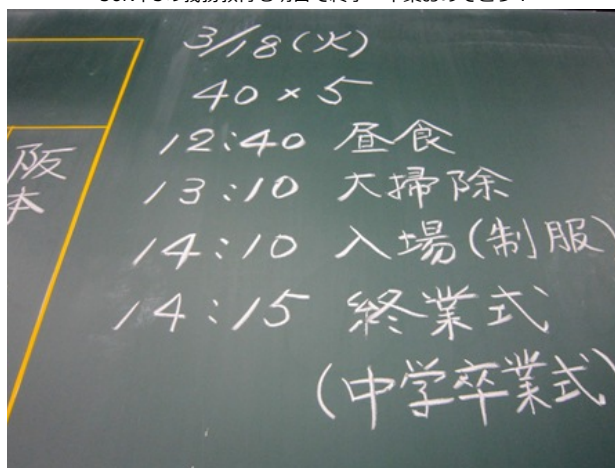 3/18(火)
40×5
12:40 昼食
13:10 大掃除
14:10 入場(制服)
14:15 終業式
(中学卒業式)
阪本